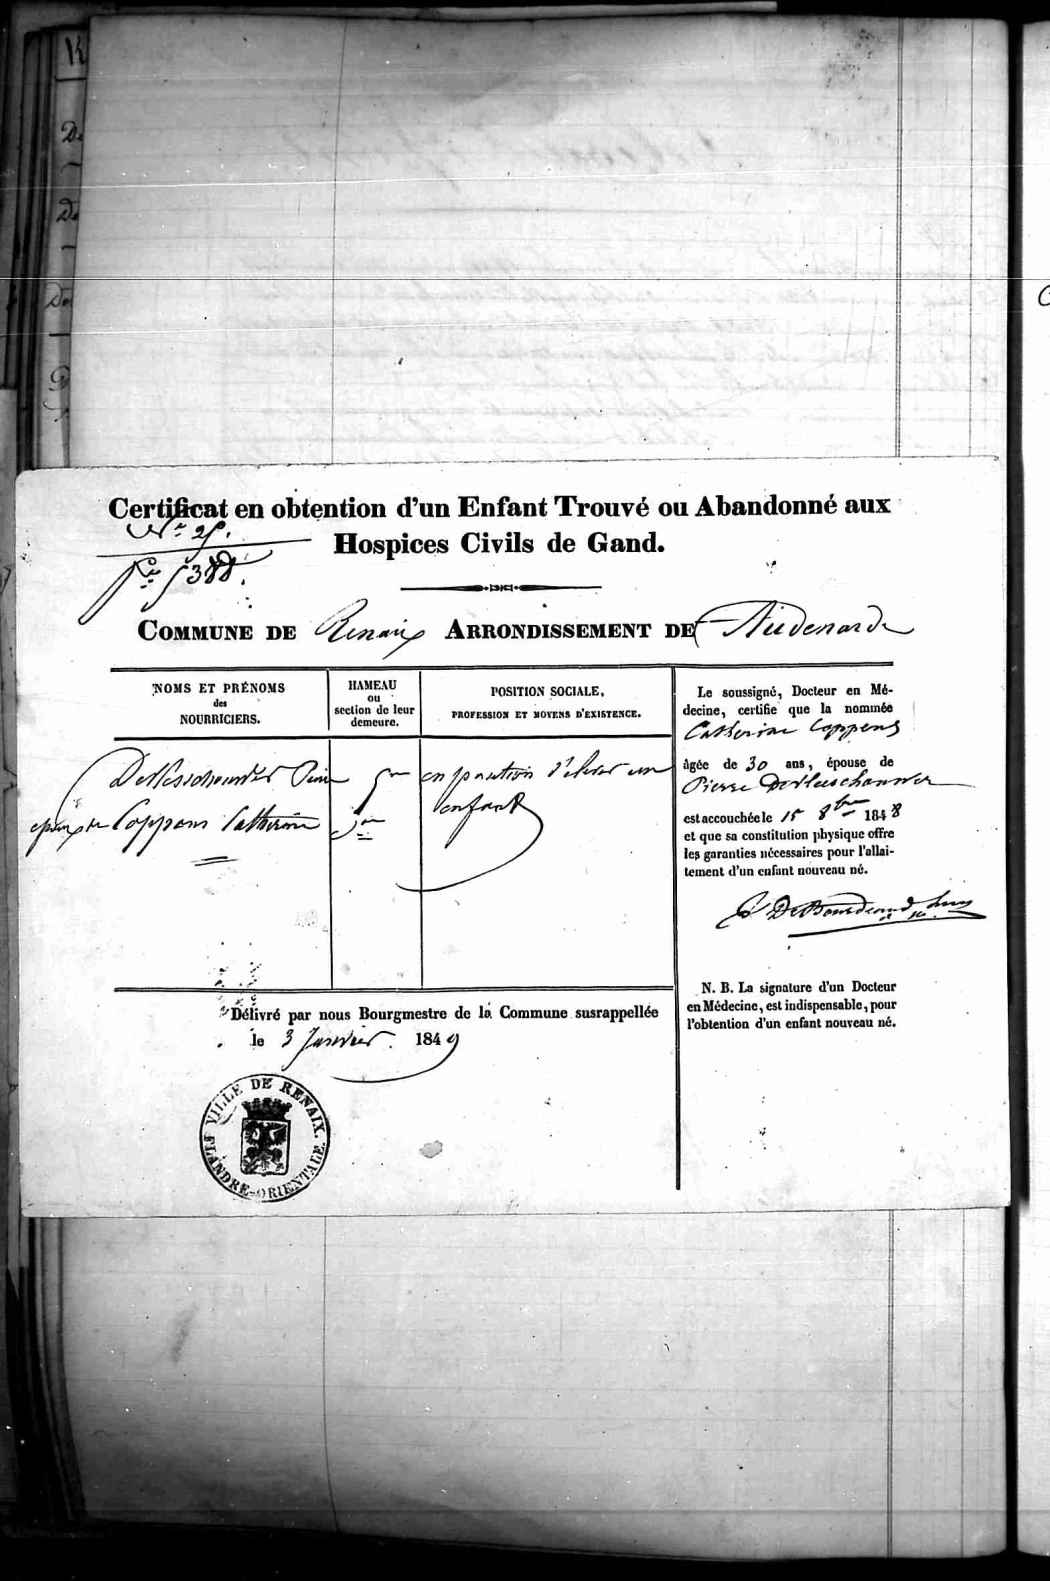 Certificat en obtention d'un Enfant Trouvé ou Abandonné aux
Hospices Civils de Gand.
N° 25.
5388.
COMMUNE DE Renaix ARRONDISSEMENT DE Audenarde
NOMS ET PRÉNOMS
des
NOURRICIERS.
HAMEAU
ou
section de leur
demeure.
POSITION SOCIALE,
PROFESSION ET MOYENS D'EXISTENCE.
Pierre
Coppens Catherine
5me
Son
en position d'élever un
enfant
Le soussigné, Docteur en Mé-
decine, certifie que la nommée
Catherine Coppens
âgée de 30 ans, épouse de
Pierre
est accouchée le 15 8bre 1848
et que sa constitution physique offre
les garanties nécessaires pour l'allai-
tement d'un enfant nouveau né.
N. B. La signature d'un Docteur
en Médecine, est indispensable, pour
l'obtention d'un enfant nouveau né.
Délivré par nous Bourgmestre de la Commune susrappellée
le 3 Janvier 1849
VILLE DE RENAIX.
FLANDRE-ORIENTALE.